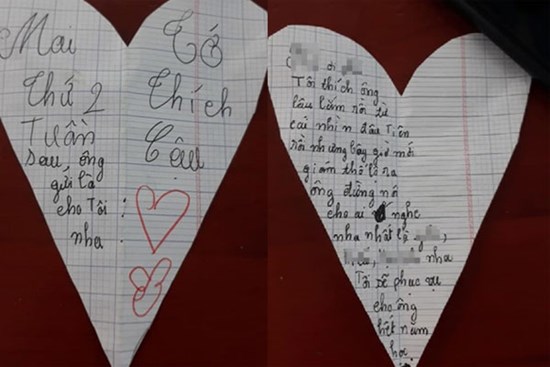 Mai
Thứ 2
Tuần
sau, ông
gửi là
cho Tôi :
nha .
Tớ
Thích
Cậu
ơi
Tôi thích ông
lâu lắm rồi từ
cái nhìn đâu Tiên
rồi nhưng bây giờ mới
giám thổ lộ ra
ông đừng nó
cho ai nghe
nha nhất là
nha
Tôi sẽ phục vụ
cho ông
hết năm
học